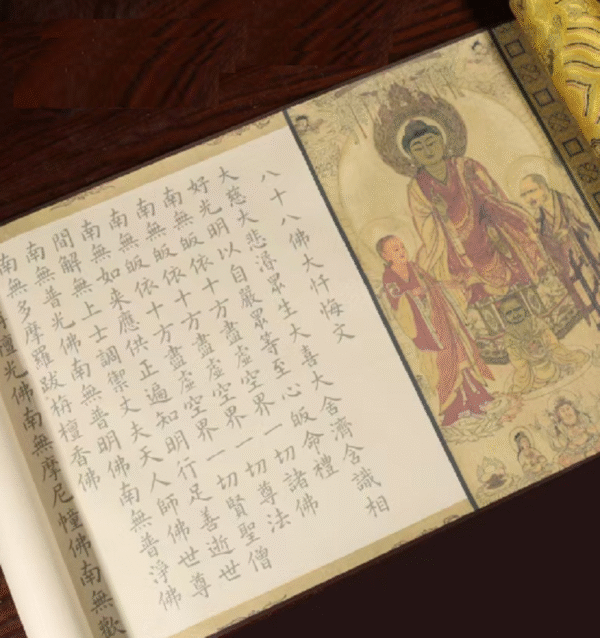 八十八佛大忏悔文
大慈大悲湣眾生大喜大舍濟含識相
好光明以自嚴眾等至心皈命禮
南無皈依十方盡虛空界一切諸佛
南無皈依十方盡虛空界一切尊法
南無皈依十方盡虛空界一切賢聖僧
南無如來應供正遍知明行足善逝世
間解無上士調禦丈夫天人師佛世尊
南無普光佛南無普明佛南無普淨佛
南無多摩羅跋栴檀香佛
南無檀光佛南無摩尼幢佛南無歡